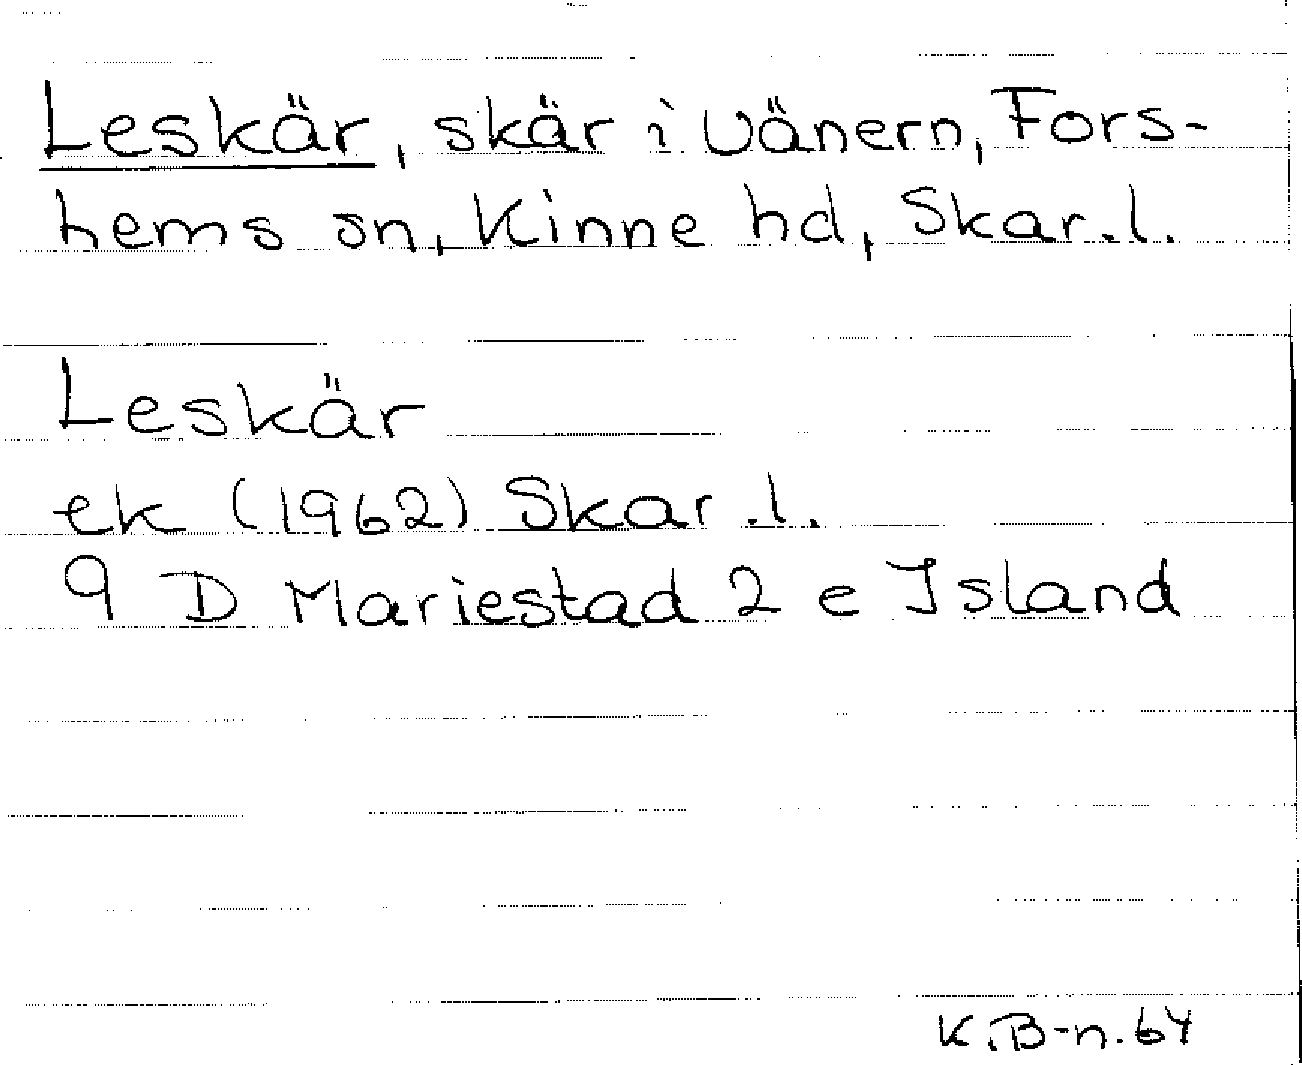 Leskär, skär i Vänern, Fors-
hems sn, Kinne hd, Skar.l.
Leskär
ek (1962) Skar.l.
9 D Mariestad 2 e Island
K.B-n.64